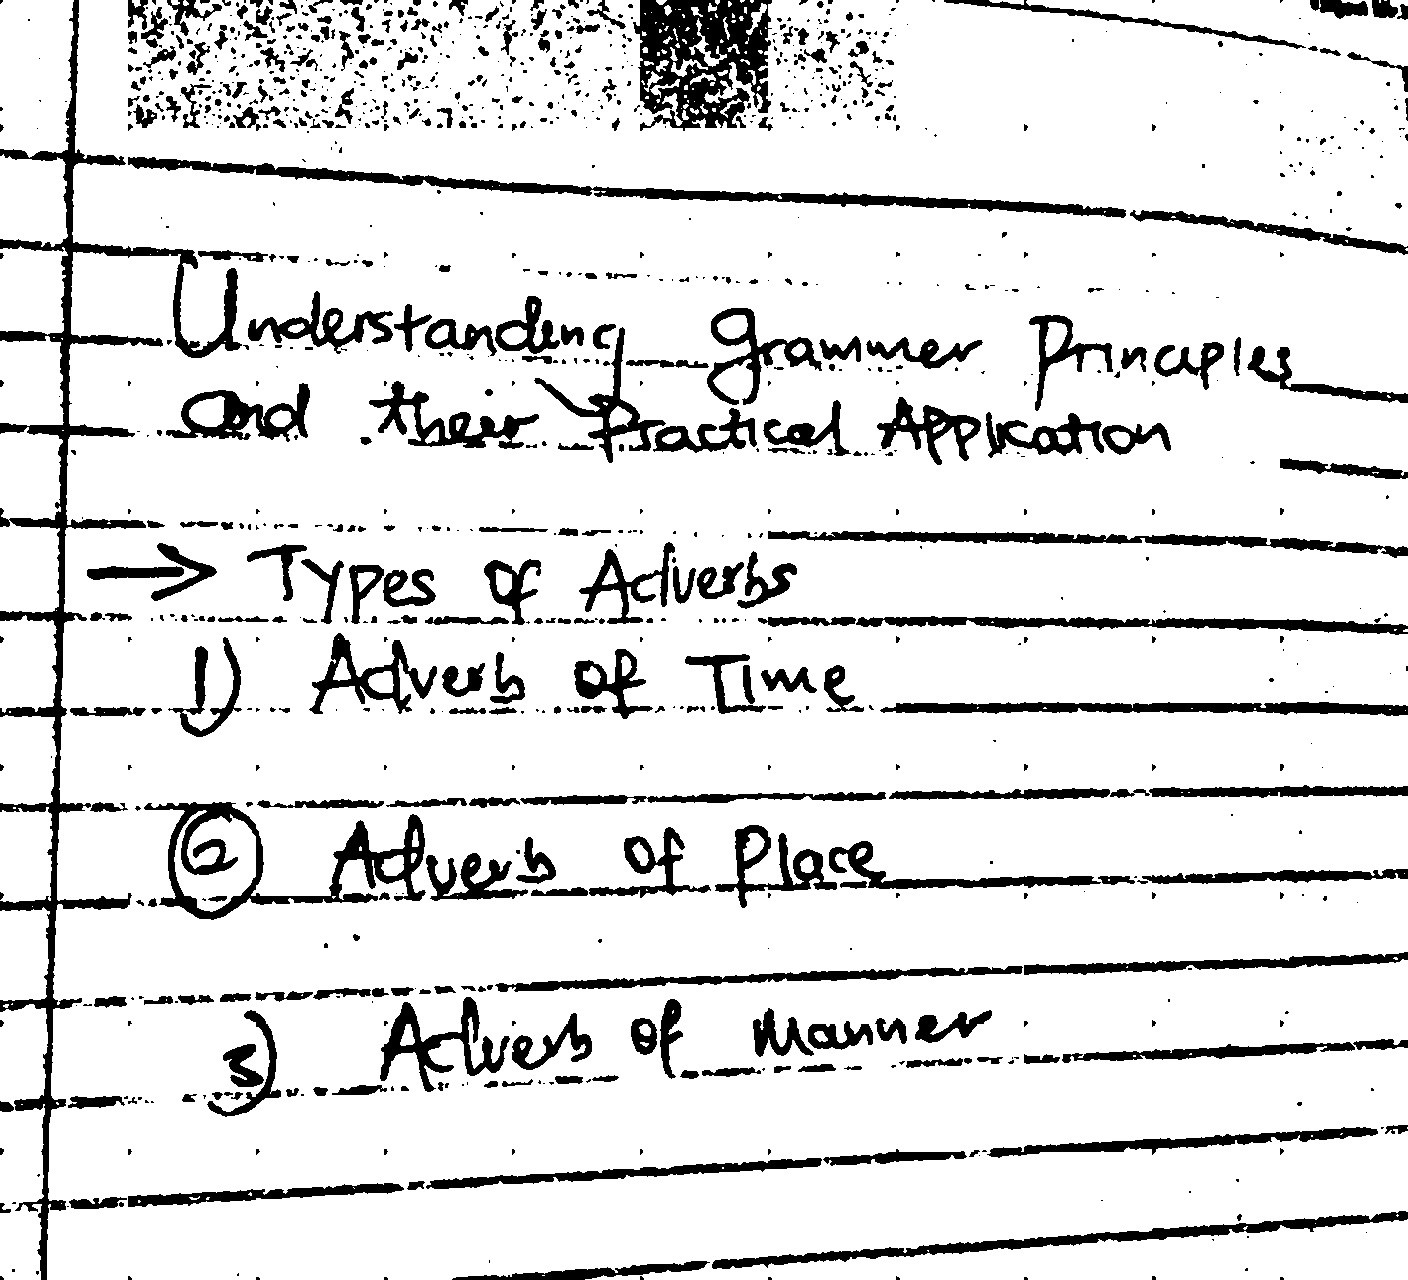 Understanding grammer Principles
and their Practical Application
→ Types of Adverbs
1) Adverb of Time
② Adverb of Place
3) Adverb of Manner